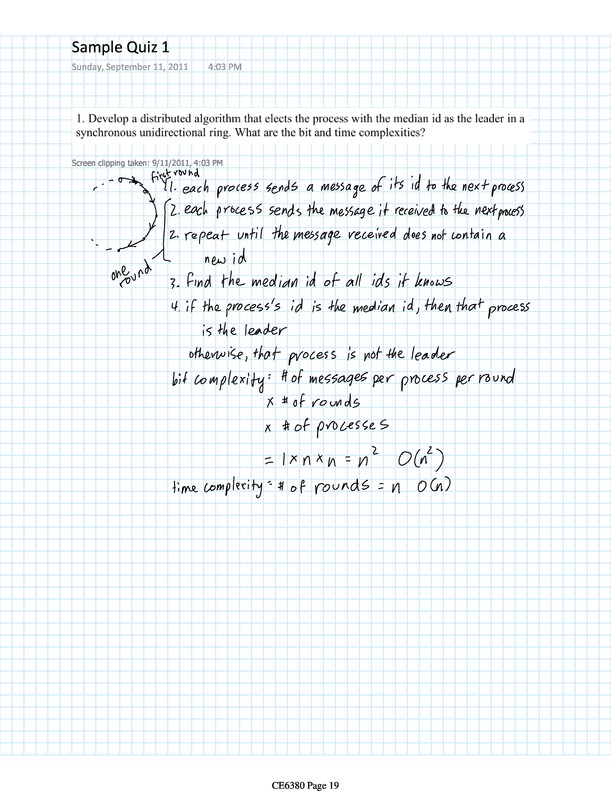 Sample Quiz 1
Sunday, September 11, 2011 4:03 PM
1. Develop a distributed algorithm that elects the process with the median id as the leader in a
synchronous unidirectional ring. What are the bit and time complexities?
Screen clipping taken: 9/11/2011, 4:03 PM
first round
1. each process sends a message of its id to the next process
2. each process sends the message it received to the next process
2. repeat until the message received does not contain a
new id
one
round
3. find the median id of all ids it knows
4. if the process's id is the median id, then that process
is the leader
otherwise, that process is not the leader
bit complexity = # of messages per process per round
x # of rounds
x # of processes
= 1 x n x n = n² O(n²)
time complexity = # of rounds = n O(n)
CE6380 Page 19